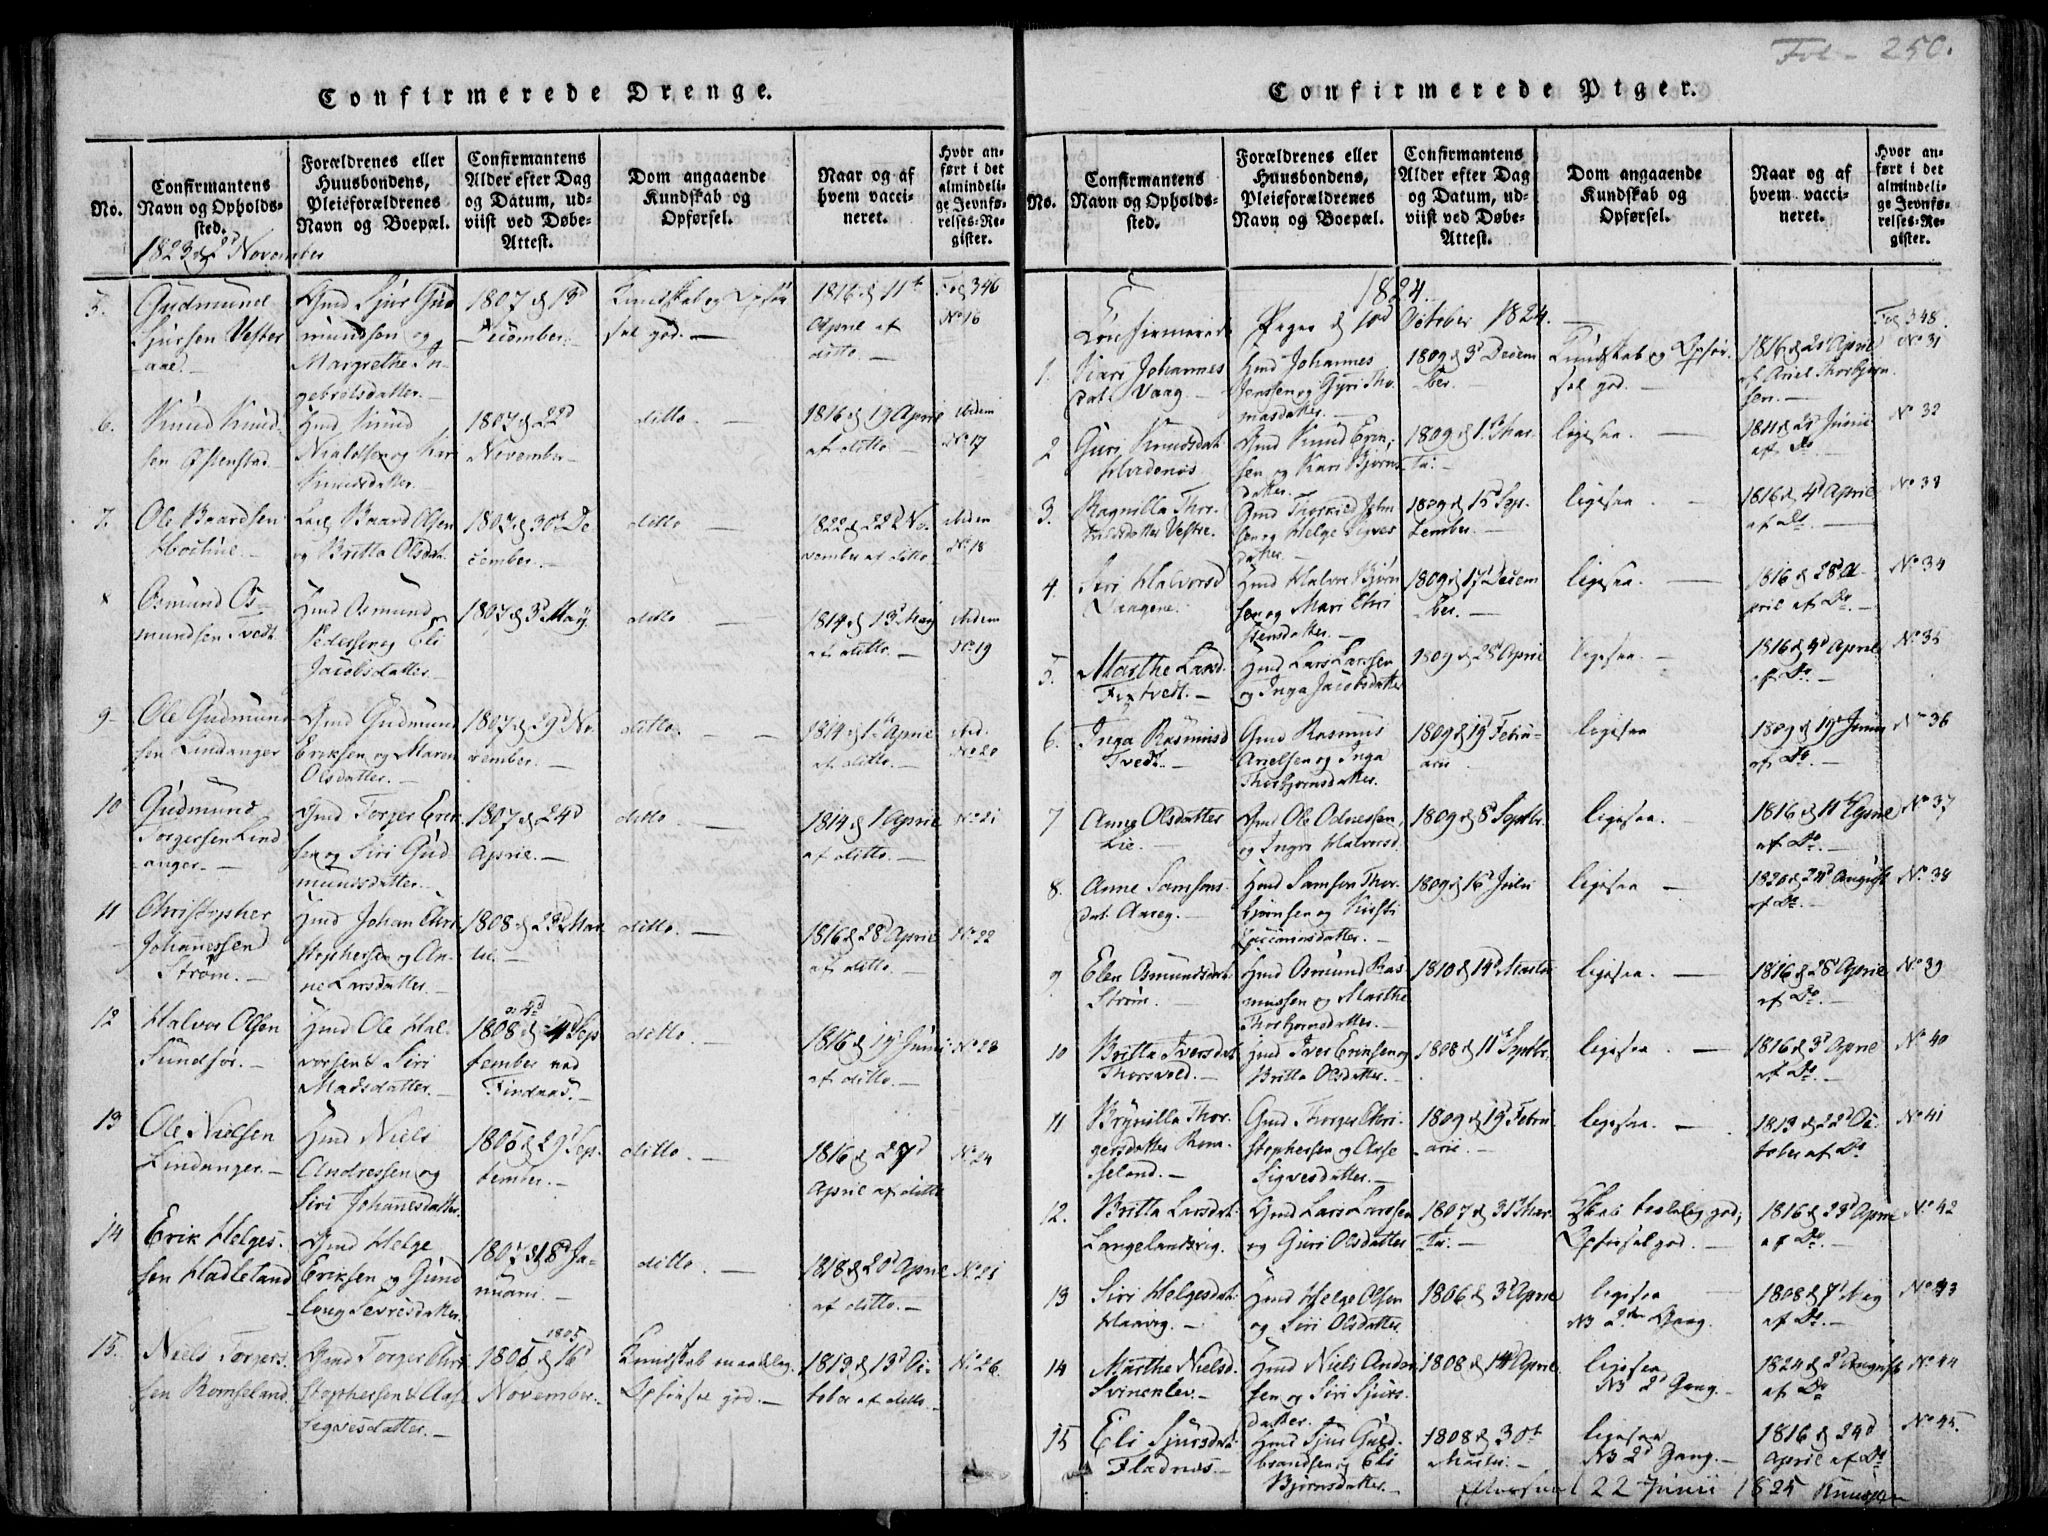 Fol - 250.
Confirmerede Drenge.
No.
Confirmantens
Navn og Opholds-
sted.
Forældrenes eller
Huusbondens,
Pleieforældrenes
Navn og Boepæl.
Confirmantens
Alder efter Dag
og Datum, ud-
viist ved Døbe-
Attest.
Dom angaaende
Kundskab og
Opførsel.
Naar og af
hvem vacci-
neret.
Hvor an-
ført i det
almindeli-
ge Jevnfø-
relses-Re-
gister.
1823 d 2d November
5.
Gudmund
Sjursen Vester
aae.
Gmd Sjur Gud
mundsen og
Margrethe In-
gebretsdatter.
1807 d 13d
December.
Kundskab og Opfør
sel god.
1816 d 11te
April af
ditto.
Fol 346
No 16
6.
Knud Knud-
sen
Knud
og Kari
Knudsdatter.
1807 d 22d
November
ditto.
1816 d 19 April
af ditto
ibidem
No 17
7.
Ole Baardsen
Baard Olsen
og Britta Olsdat.
1807 d 30t De
cember.
ditto
1822 d 22d No
vember af ditto
ibidem
No 18
Osmund Os-
mundsen Tvedt
Gmd Osmund
Pedersen og Eli
Jacobsdatter.
1807 d 3d May.
ditto
1814 d 13d May
af ditto.
ibidem
No 19
9
Ole Gudmund
sen Lindanger
Gmd Gudmund
Eriksen og Maren
Olsdatter.
1807 d 29d No
vember.
ditto.
1814 d 1te April
af ditto.
ibid.
No 20
10
Gudmund
Torgersen Lind
anger.
Gmd Torger Erik
sen og Siri Gud
mundsdatter.
1807 d 24d
April.
ditto.
1814 d 1 April
af ditto.
No 21
11
Christopher
Johannessen
Strøm.
Gmd Johan Chri
stophersen og An-
ne Larsdatter.
1808 d 23d Mar
tii.
ditto.
1816 d 28d April
af ditto.
No 22
12
Halvor Olsen
Sundfør.
Gmd Ole Hal-
vorsen & Siri
Madsdatter.
1808 d 4d Sep
tember ved
Findaas.
ditto.
1816 d 19d Junii
af ditto.
No 23
13
Ole Nielsen
Lindanger.
Gmd Niels
Andressen og
Siri Johannesdatter.
1806 d 29d Sep-
tember.
ditto.
1816 d 27d
April af ditto
No 24
14
Erik Helges-
sen Hadleland
Gmd Helge
Eriksen og Gund
laug Sevrisdatter.
1807 d 18d Ja-
nuarii.
ditto.
1818 d 20d April
af ditto.
No 25
15.
Niels Torgers-
sen Romseland.
Gmd Torger Chri
stophersen & Aase
Sigvesdatter.
1805
1805 d 16d
November.
Kundskab maadelig.
Opførsel god.
1813 d 13d Oc-
tober af ditto.
No 26.
Confirmerede Piger.
No.
Confirmantens
Navn og Opholds-
sted.
Forældrenes eller
Huusbondens,
Pleieforældrenes
Navn og Boepæl.
Confirmantens
Alder efter Dag
og Datum, ud-
viist ved Døbe-
Attest.
Dom angaaende
Kundskab og
Opførsel.
Naar og af
hvem vacci-
neret.
Hvor an-
ført i det
almindeli-
ge Jevnfø-
relses-Re-
gister.
1824.
Confirmerede Piger d 10d October 1824.
1.
Kari Johannes
dat. Vaag
Gmd Johannes
Jenssen og Gyri Tho-
masdatter.
1809 d 3d Decem
ber.
Kundskab og Opfør-
sel god.
1816 d 21d April
af Ariel Thorbjørn
sen.
Fol 348.
No 31
2
Guri Knudsdat.
Hvidenæs
Gmd Knud Erik-
sen og Kari Bjørns-
datter.
1809 d 1te Mar-
tii.
ligesaa.
1811 d 2d Junii
af Do
No 32
3.
Ragnilla Thor-
kildsdatter Vestre.
Gmd Thorkild John
sen og Helge Sigves
datter.
1809 d 15d Sep-
tember.
ligesaa.
1816 d 4d April
af Do.
No 33
4.
Siri Halvorsd
Laagene.
Gmd Halvor Bjørn
sen og Mari Chri
stensdatter.
1809 d 17d Decem
ber.
ligesaa.
1816 d 28d A-
pril af Do.
No 34
5.
Marthe Larsd.
Fixtvedt.
Gmd Lars Larssen
og Inga Jacobsdatter
1809 d 28d April
ligesaa.
1816 d 9d April
af Do.
No 35
6.
Inga Rasmusd
Tvedt.
Gmd Rasmus
Arielsen og Inga
Thorbjørnsdatter.
1809 d 19d Febru-
arii
ligesaa
1809 d 19d Junii
af Do.
No 36
7
Anne Olsdatter
Lie.
Gmd Ole Odnessen,
og Ingri Halvorsd.
1809 d 8d Septbr.
ligesaa.
1816 d 11te April
af Do.
No 37
8.
Anne Samsons-
dat. Aareg.
Gmd Samson Thor-
bjørnsen og Kirsti
1809 d 16d Julii
ligesaa
1820 d 24d August
af Do.
No 38
9
Elen Osmundsdat.
Strøm.
Gmd Osmund Ras
mussen og Marthe
Thorbjørnsdatter.
1810 d 14d Martii
ligesaa.
1816 d 28d April
af Do.
No 39
10
Britta Iversdat.
Thorsvold.
Gmd Iver Eriksen og
Britta Olsdatter.
1808 d 11te Septbr.
ligesaa.
1816 d 3d April
af Do.
No 40
11
Brynilla Thor-
gersdatter Rom-
seland.
Gmd Thorger Chri-
stophersen og Aase
Sigvesdatter.
1809 d 19d Febru
arii.
ligesaa.
1813 d 22d Oc-
tober af Do
No 41
12.
Britta Larsdat.
Langelandsvig.
Gmd Lars Larssen
og Guri Olsdatter
1807 d 31te Mar-
tii.
Kskab taalelig god;
Opførsel god.
1816 d 23d April
af Do.
No 42
13
Siri Helgesdat.
Haavig.
Gmd Helge Olsen
og Siri Olsdatter.
1806 d 3d April
ligesaa
NB 2den Gang.
1808 d 7d Maj
af Do.
No 43
14
Marthe Nielsd.
Svinenlev.
Gmd Niels Andri
sen og Siri Sjurs-
datter.
1808 d 14d April.
ligesaa
NB 2d Gang.
1824 d 2d August
af Do
No 44
15
Eli Sjursdat.
Fladnæs.
Gmd Sjur Guld-
brandsen og Eli
Bjørnsdatter.
1808 d 30t
Martii.
ligesaa
NB 2d Gang.
1816 d 24d
April af Do.
No 45.
Efterseet 22 Junii 1825